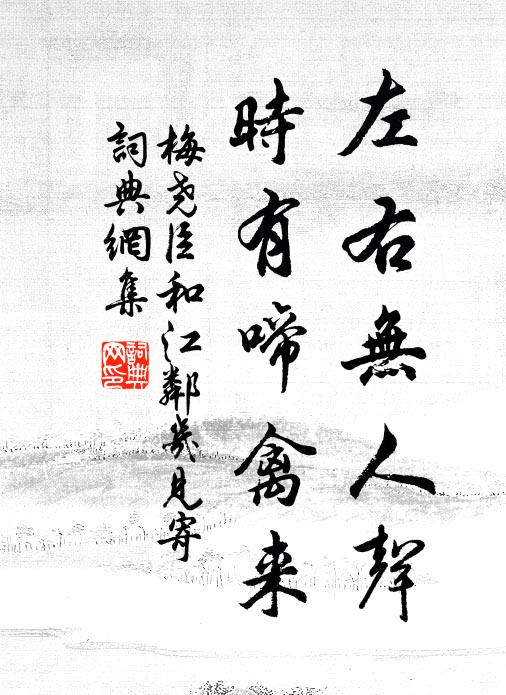 左右無人聲
時有啼禽来
梅尧臣和江鄰幾見寄
詞典網集
詞典
网印